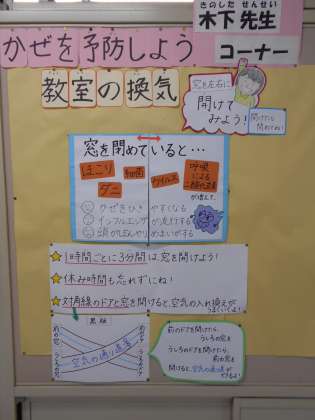 きのした せんせい
木下 先生
コーナー
かぜを予防しよう
教室の換気
窓を左右に
開けて
みよう!
窓を閉めていると…
ほこり
細菌
ウイルス
ダニ
呼吸
による
二酸化炭素
が増えて、
かぜをひきやすくなる
インフルエンザが流行する
頭がぼんやりめまいがする
1時間ごとに3分間は、窓を開けよう!
休み時間も忘れずにね!
対角線のドアと窓を開けると、空気の入れ換えが
うまくいくよ!
黒板
空気の通り道
前のドアを開けたら、
うしろの窓を
うしろのドアを開けたら、
前の窓を
開けると、空気の通り道が
できるよ!